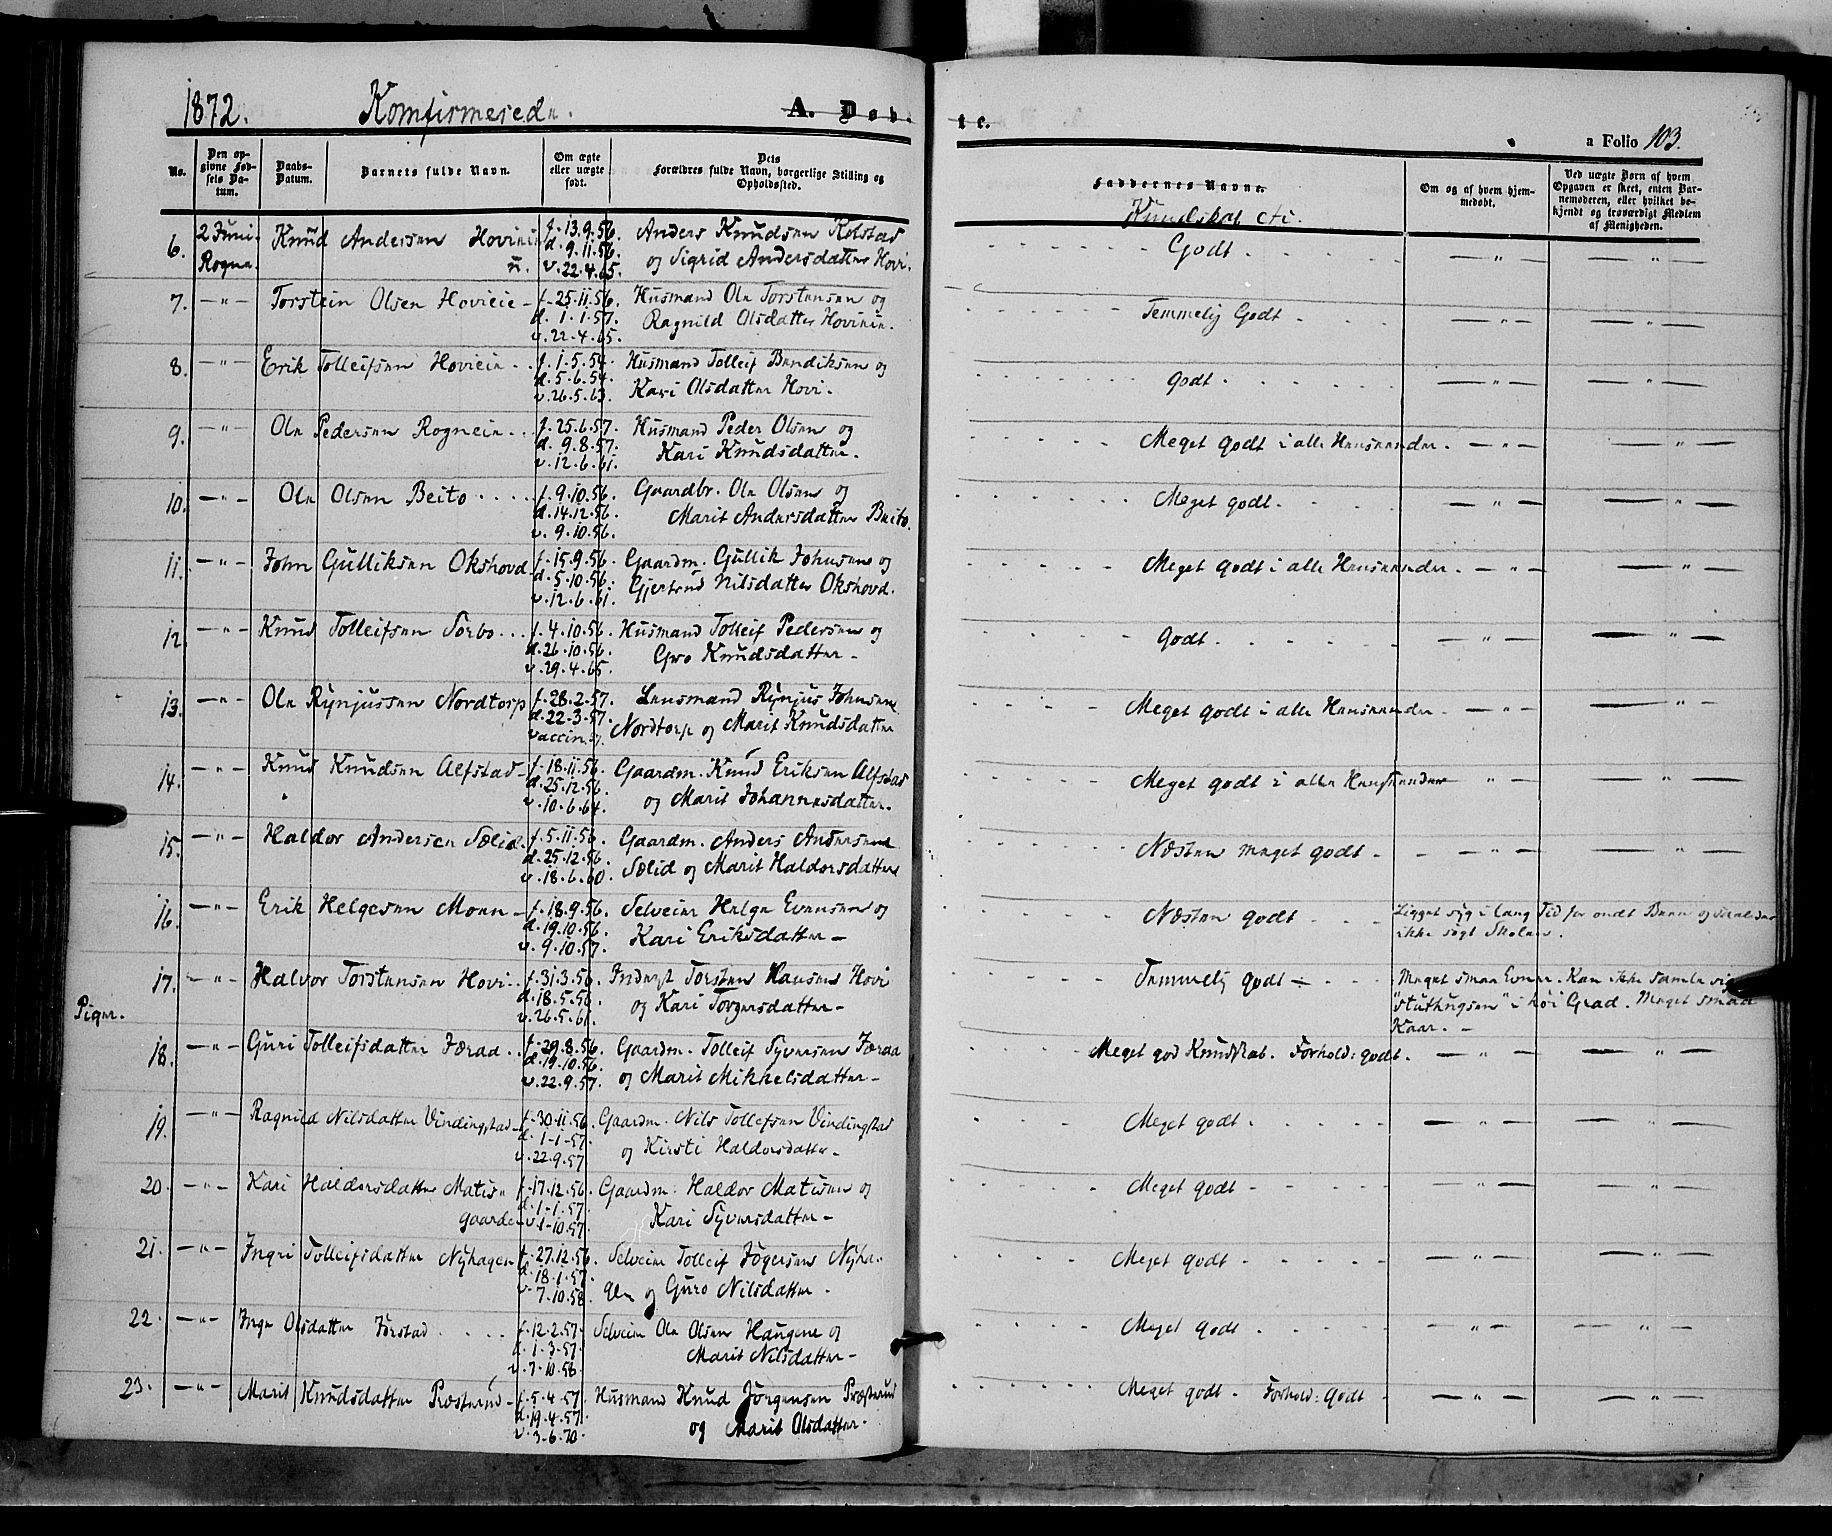 1872. Komfirmerede. A. Døb- te. a Folio 103.
No. Den opgivne Fødsels Datum. Daabs-Datum. Barnets fulde Navn. Om ægte eller uægte født. Dets Forældres fulde Navn, borgerlige Stilling og Opholdssted. Faddernes Navne. Om og af hvem hjemmedøbt. Ved uægte Børn af hvem Opgaven er skeet, enten Barnemoderen, eller hvilket bekjendt og troværdigt Medlem af Menigheden.
Kundskab etc.
6. 2 Juni Knud Andersen Hoviein f. 13.9.56. Anders Knudsen Kolstad Godt
Rogne. u. d. 9.11.56. og Sigrid Andersdatter Hovi.
v. 22.4.65.
7. —"— Torstein Olsen Hoviein f. 25.11.56. Husmand Ole Torstensen og Temmelig Godt
d. 1.1.57. Ragnild Olsdatter Hoviein.
v. 22.4.65.
8. —"— Erik Tolleifsen Hoviein f. 1.5.54. Husmand Tolleif Bendiksen og Godt
d. 5.6.54. Kari Olsdatter Hovi.
v. 26.5.63.
9. —"— Ole Pedersen Rognein f. 25.6.57. Husmand Peder Olsen og Meget godt i alle Henseender.
d. 9.8.57. Kari Knudsdatter.
v. 12.6.61.
10. —"— Ole Olsen Beito f. 9.10.56. Gaardbr. Ole Olsen og Meget godt.
d. 14.12.56. Marit Andersdatter Beito.
v. 9.10.56.
11. —"— John Gulliksen Okshovd f. 15.9.56. Gaardm. Gullik Johnsen og Meget godt i alle Henseender.
d. 5.10.56. Gjertrud Nilsdatter Okshovd.
v. 12.6.61.
12. —"— Knud Tolleifsen Sorbo f. 4.10.56. Husmand Tolleif Pedersen og Godt
d. 26.10.56. Gro Knudsdatter
v. 29.4.65.
13. —"— Ole Rynjussen Nordtorp f. 28.2.57. Lensmand Rynjus Johnsen Meget godt i alle Henseender
d. 22.3.57. Nordtorp og Marit Knudsdatter
vaccin.
14. —"— Knud Knudsen Alfstad f. 18.11.56. Gaardm. Knud Eriksen Alfstad Meget godt i alle Henseender
d. 25.12.56. og Marit Johannesdatter.
v. 10.6.64.
15. —"— Haldor Andersen Sælid f. 5.11.56. Gaardm. Anders Andersen Næsten meget godt
d. 25.12.56. Sælid og Marit Haldorsdatter
v. 18.6.60.
16. —"— Erik Helgesen Moen f. 18.9.56. Selveier Helge Evensen og Næsten godt Ligget syg i lang Tid for ondt Been og saaledes
d. 19.10.56. Kari Eriksdatter ikke søgt Skolen.
v. 9.10.57.
17. —"— Halvor Torstensen Hovi f. 31.3.56. Inderst Torsten Hansen Hovi Temmelig godt Meget smaa Evner. Kan ikke samle sig,
d. 18.5.56. og Kari Torgersdatter "stuthugsen" i høi Grad. Meget smaa
v. 26.5.61. Kaar.
Piger.
18. —"— Guri Tolleifsdatter Færaa f. 29.8.56. Gaardm. Tolleif Syversen Færaa Meget god Kundskab. Forhold: godt.
d. 19.10.56. og Marit Mikkelsdatter
v. 22.9.57.
19. —"— Ragnild Nilsdatter Vindingstad f. 30.11.56. Gaardm. Nils Tollefsen Vindingstad Meget godt
d. 1-1-57. og Kirsti Haldorsdatter
v. 22.9.57
20. —"— Kari Haldorsdatter Matis- f. 17.12.56. Gaardm. Haldor Matisen og Meget godt
gaarden d. 1-1.57. Kari Syversdatter
v. 1-10.57.
21. —"— Ingri Tolleifsdatter Nyhagen f. 27.12.56. Selveier Tolleif Jøgersen Nyha- Meget godt
d. 18.1.57. gen og Guro Nilsdatter.
v. 7.10.58.
22. —"— Inge Olsdatter Jørstad f. 12.2.57. Selveier Ole Olsen Haugene og Meget godt
d. 1.3.57. Marit Nilsdatter
v. 7.10.58
23. —"— Marit Knudsdatter Præsterud f. 5.4.57. Husmand Knud Jørgensen Præsterud Meget godt. Forhold: Godt
d. 19.4.57. og Marit Olsdatter.
v. 3.6.70.